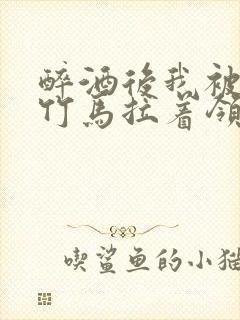 醉酒後我被
竹馬拉着領
喫鯊鱼的小猫